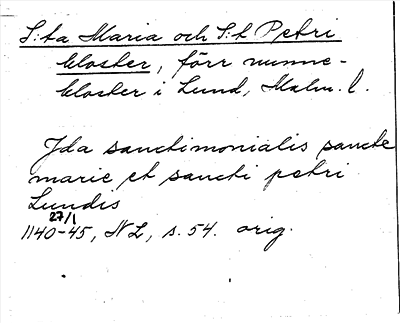 S:ta Maria och S:t Petri
kloster, förr nunne-
kloster i Lund, Malm. l.
Ida sanctimonialis sancte
marie et sancti petri
Lundis
27/1
1140-45, NL, s. 54. orig.